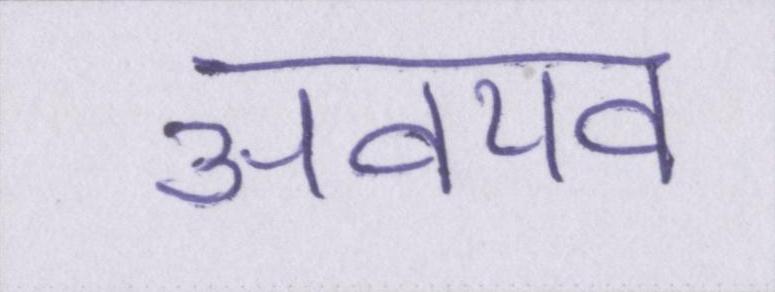 अवयव